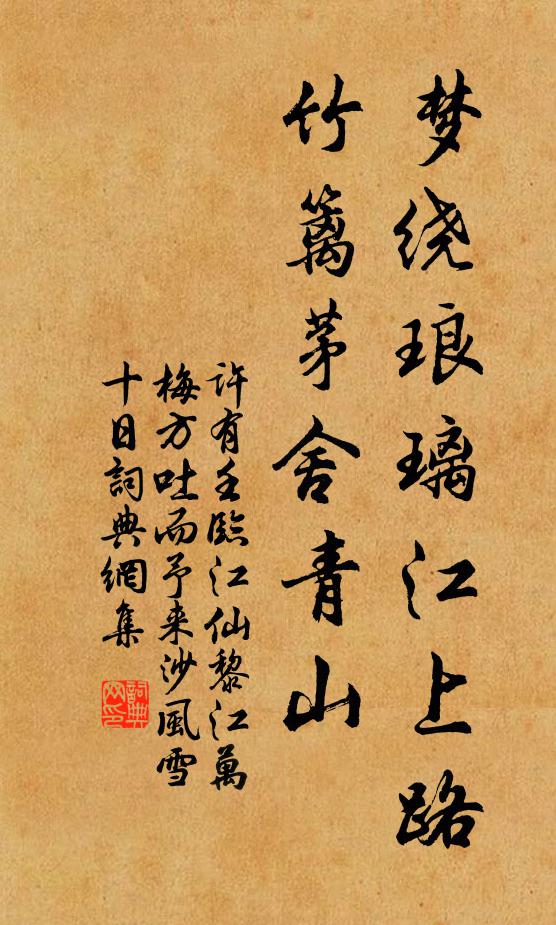 梦绕琅璃江上路
竹篱茅舍青山
許有壬臨江仙黎江萬
梅方吐而予来沙風雪
十日詞典網集
詞典网印